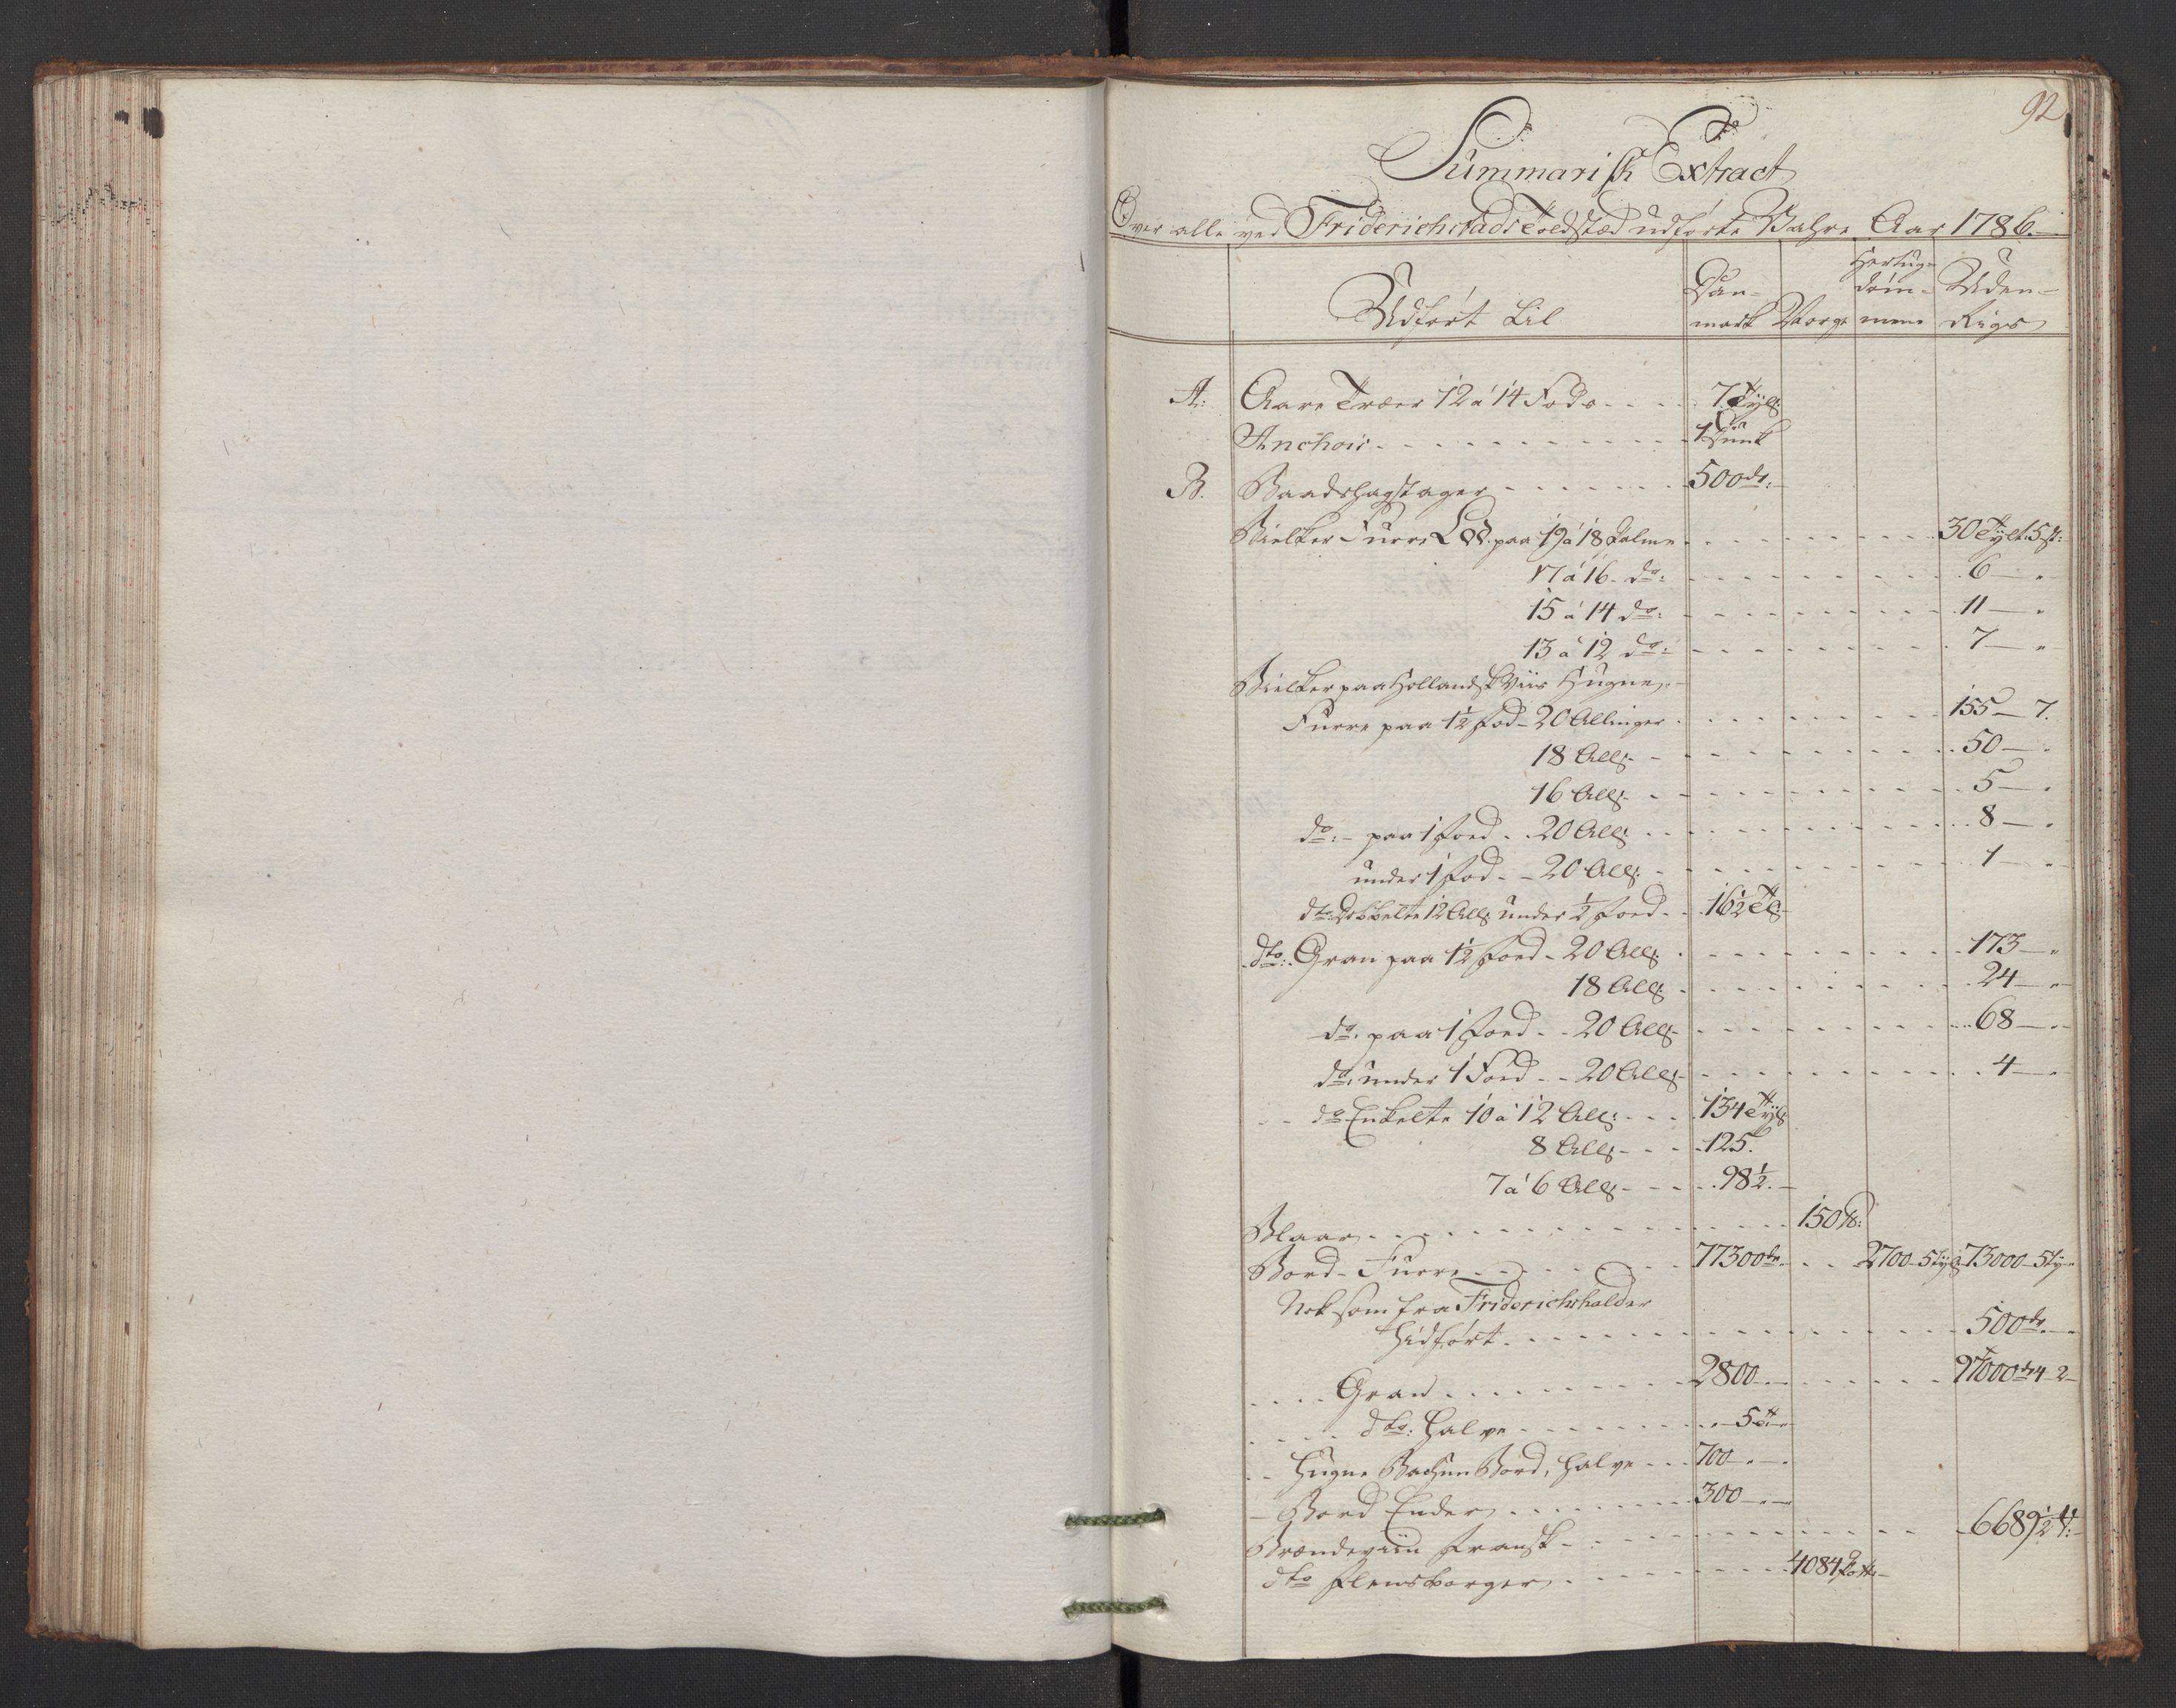 92
Summarisk Extract
Over alle ved Friderichstads Toldsted udførte Vahre Aar 1786.
Udført til Dan- mark Norge Hertug- døm- mene Uden- Rigs
A: Aare Træer 12 á 14 Fods 7 Tylt
Anchois 1 Dunk
B. Baadshagstager 500 dr:
Bielker Furre Lød. paa 19 á 18 Palme 30 Tylt. 5 st:
17 á 16. do: 6 — "
15 á 14 do: 11 — "
13 á 12 do: 7 — "
Bielker paa Hollandsk Viis Hugne
Furre paa 1½ fod - 20 Allinger 155 — 7.
18 All: 50 — "
16 All: 5 — "
do: - paa 1 foed - 20 All: 8 — "
under 1 fod - 20 All: 1 — "
dto: Dobbelte 12 All: under ½ foed 16½ T
dto: Gran paa 1½ foed - 20 All: 173 — "
18 All: 24 — "
do. paa 1 foed - 20 All: 68 — "
do: under 1 Foed - 20 All: 4 — "
do Enkelte 10 á 12 All: 134 Tyl
8 All: 125.
7 á 6 All: 98½.
Blaar 150 ℔:
Bord - Furre 77300 dr. 2700 - 5 tyl 73000 - 5 ty
Nok som fra Friderichshalder
hidført 500 dr.
Gran 2800 97000 dr 4 - 2
dto: halve 5 T
Hugne Bachun Bord, halve 700
Bord Ender 300
Brændeviin fransk 6689½
dto flensborger 4084 Potter